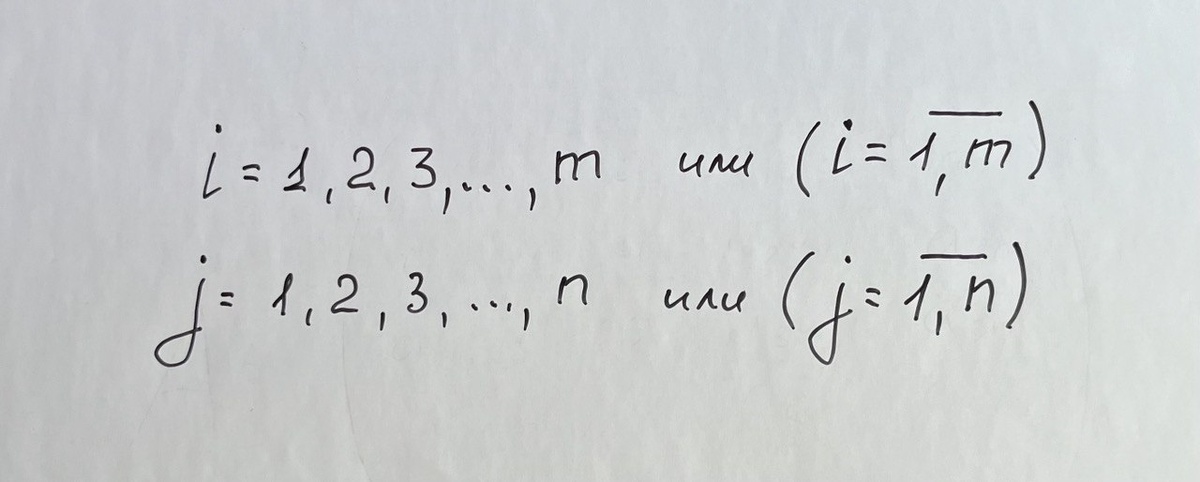 i = 1, 2, 3, ..., m или (i = \overline{1, m})
j = 1, 2, 3, ..., n или (j = \overline{1, n})